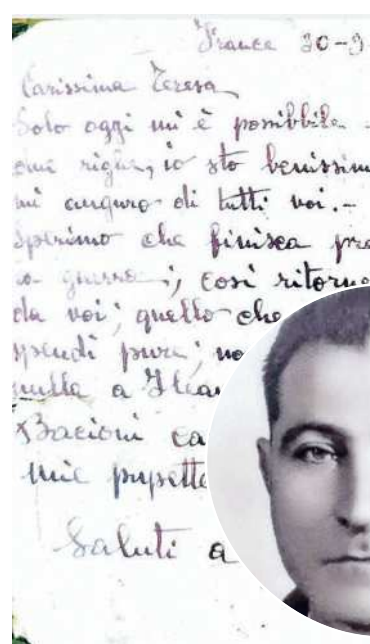 France 30-9
Carissima Teresa
Solo oggi mi è possibbile
due righe, io sto benissim
mi auguro di tutti voi.-
Sperimo che finisca pre
la guerra; così ritorne
da voi; quello che
spendi pure; no
nulla a
Bacioni ca
mie pupette
Saluti a